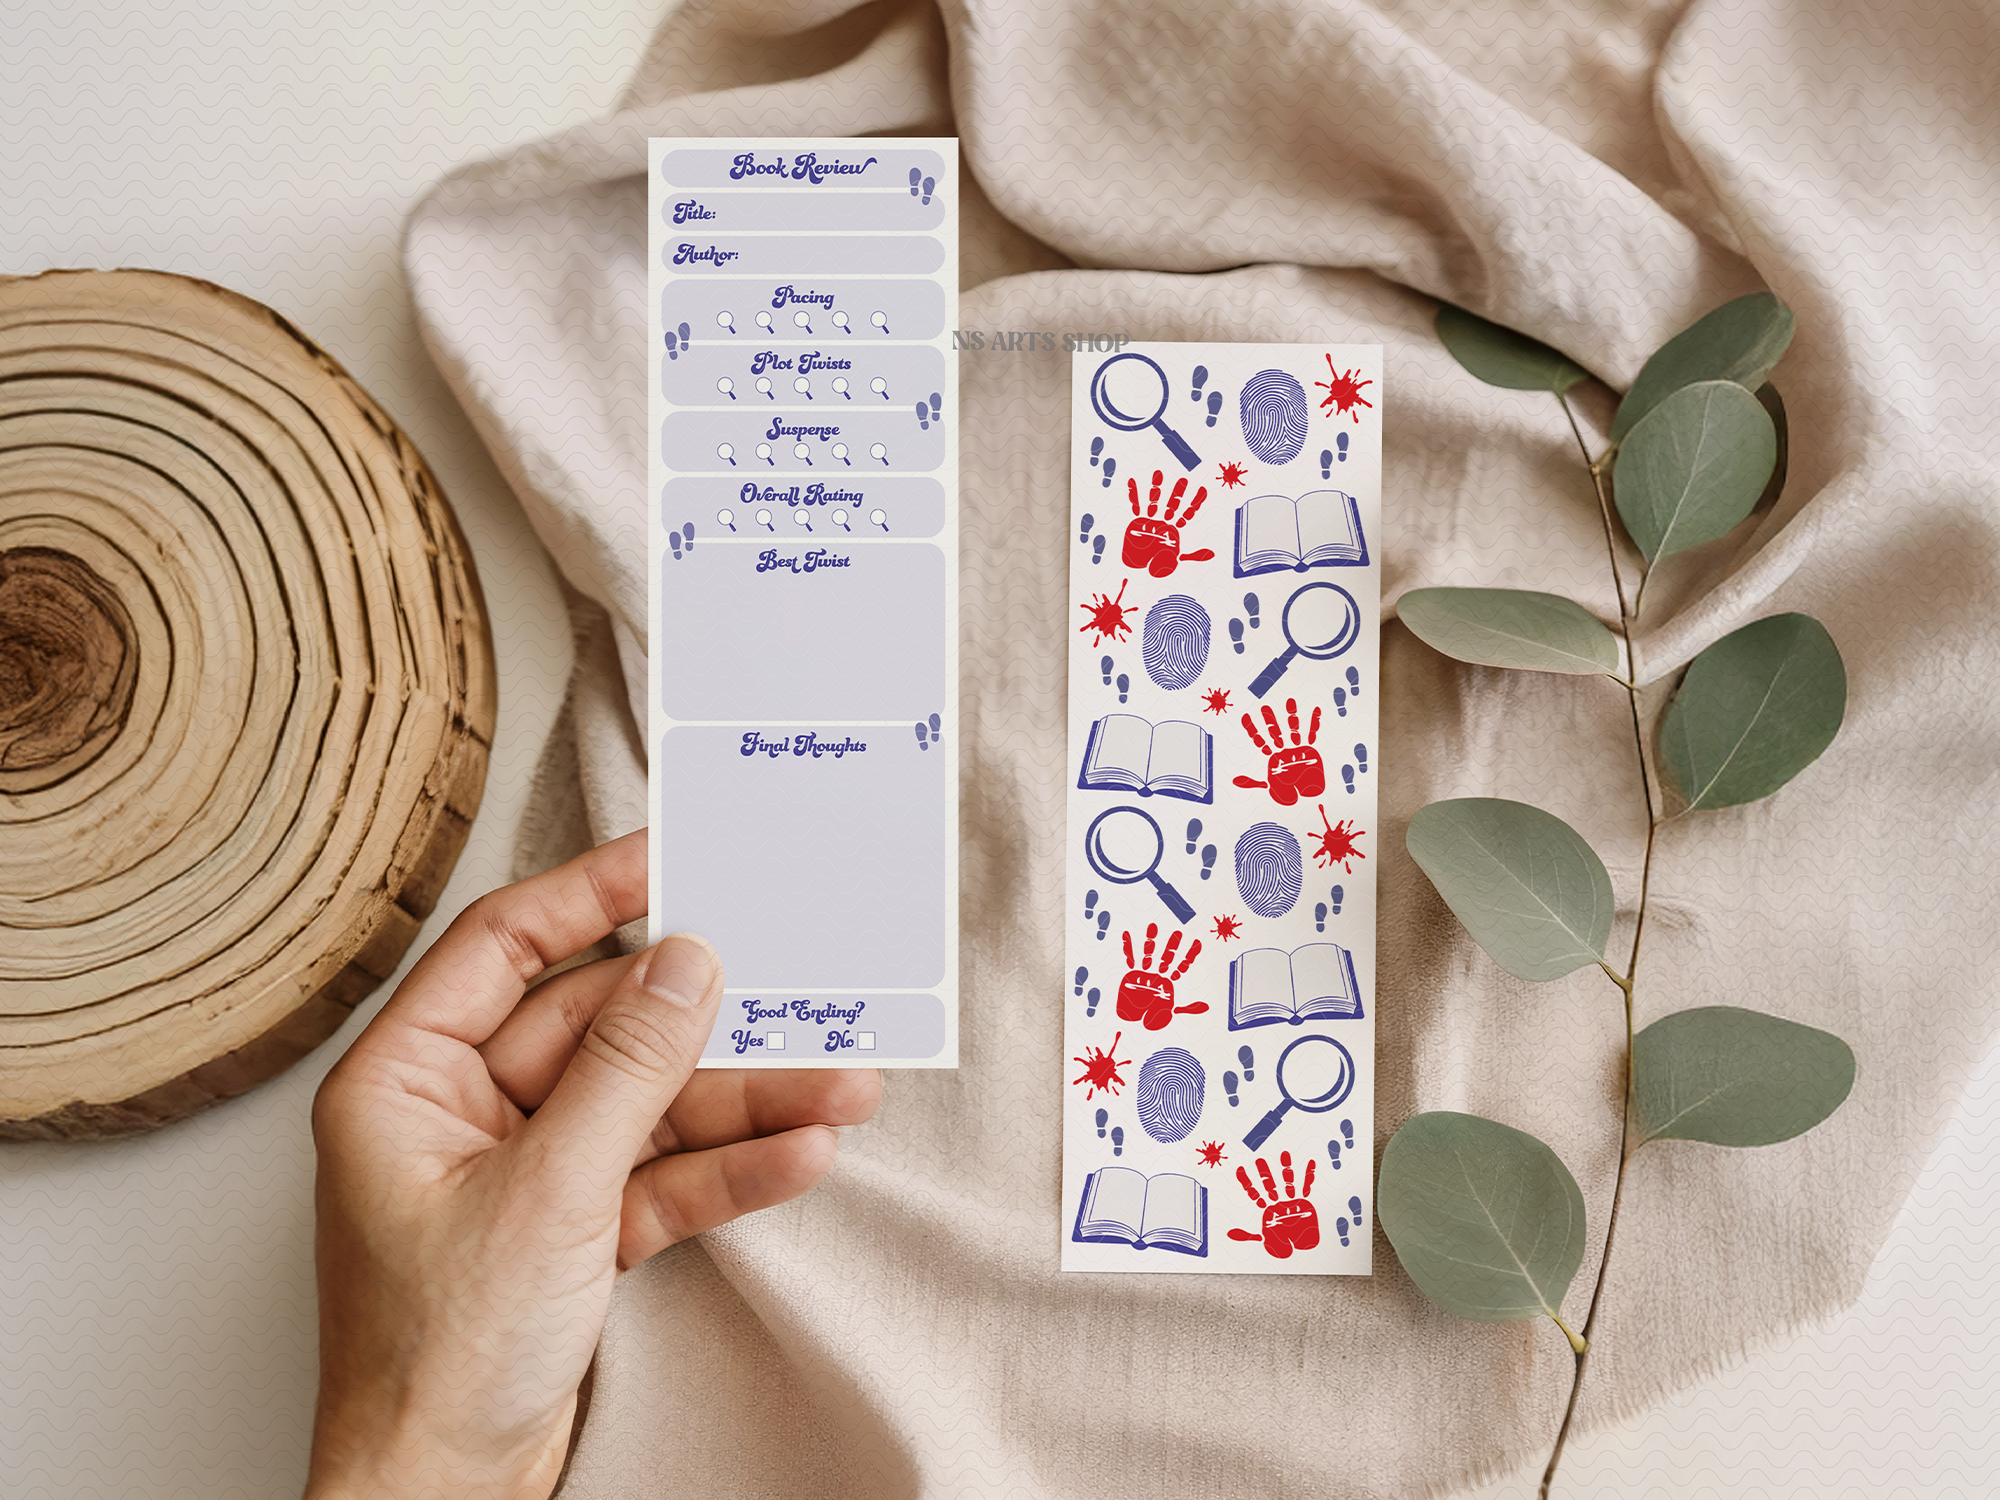 Book Review
Title:
Author:
Pacing
Plot Twists
Suspense
Overall Rating
Best Twist
Final Thoughts
Good Ending?
Yes No
NS ARTS SHOP